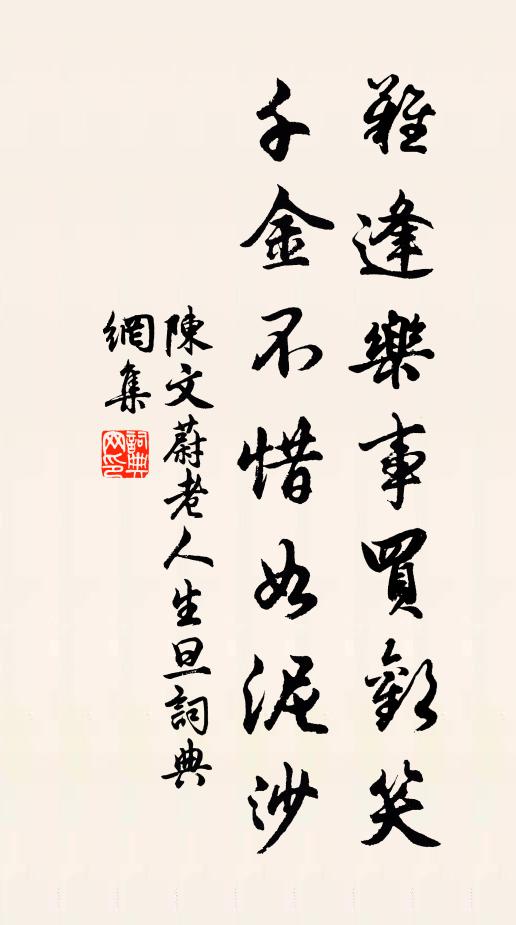 難逢樂事買歡笑
千金不惜如泥沙
陳文蔚老人生旦詞典
網集
詞典網印